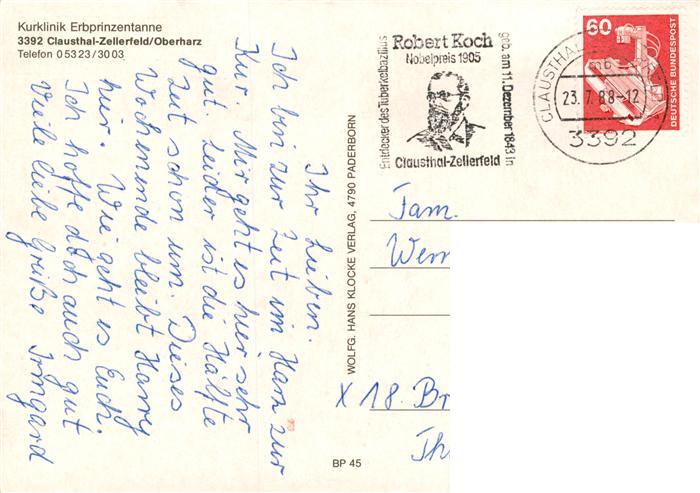 Kurklinik Erbprinzentanne
3392 Clausthal-Zellerfeld/Oberharz
Telefon 0 53 23 / 30 03
Ihr Lieben.
Ich bin zur Zeit im Harz zur
Kur. Mir geht es hier sehr
gut. Leider ist die Hälfte
Zeit schon um. Dieses
Wochenende bleibt Harry
hier. Wie geht es Euch.
Ich hoffe doch auch gut
Viele liebe Grüße Irmgard
WOLFG. HANS KLOCKE VERLAG, 4790 PADERBORN
BP 45
Entdecker des Tuberkelbazillus
Robert Koch
Nobelpreis 1905
geb. am 11. Dezember 1843 in
Clausthal-Zellerfeld
CLAUSTHAL
23.7.88-12
3392
60
DEUTSCHE BUNDESPOST
Fam.
Wern
X 18. Br
Th